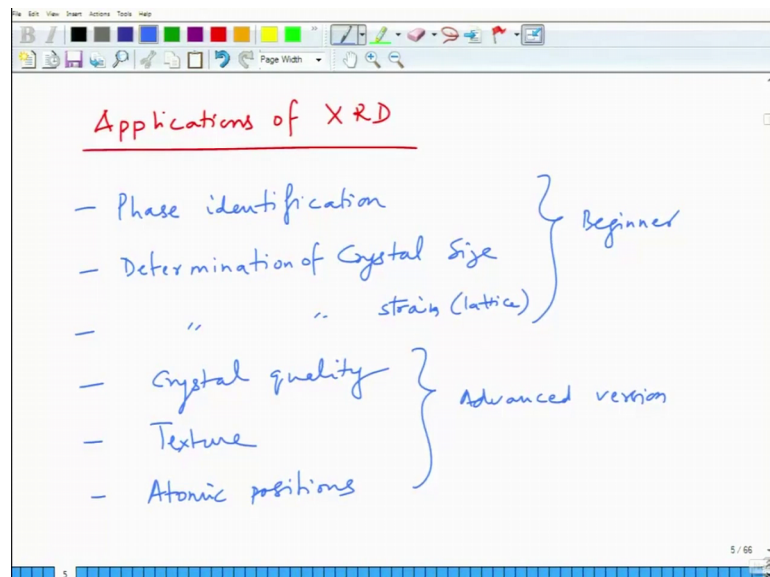 File Edit View Insert Actions Tools Help
B I
Page Width
Applications of XRD
- Phase identification
- Determination of Crystal Size
- " " strain (lattice)
Beginner
- Crystal quality
- Texture
- Atomic positions
Advanced version
5 / 66
5